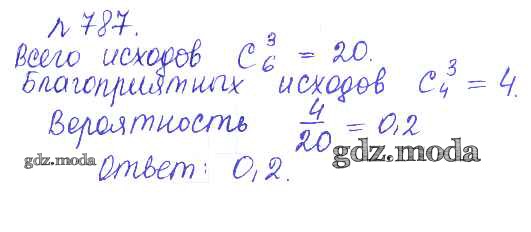 № 787.
Всего исходов C₆³ = 20.
Благоприятных исходов C₄³ = 4.
Вероятность 4/20 = 0,2
gdz.moda gdz.moda
Ответ: 0,2.